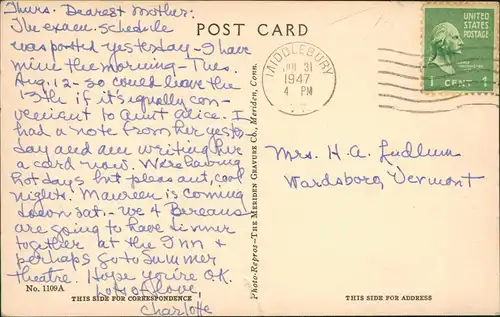 Thurs. Dearest Mother:
The exam. schedule
was posted yesterday - I have
mine the morning - Tues.
Aug. 12 - so could leave the
13th if it's equally con-
venient to Aunt Alice. I
had a note from her yester-
day and am writing her
a card now. We're having
hot days but pleasant, cool
nights. Maureen is coming
down Sat. - we 4 Bureaus
are going to have dinner
together at the Inn &
perhaps go to Summer
theatre. Hope you're O.K.
Lots of love,
Charlotte
No. 1109A
THIS SIDE FOR CORRESPONDENCE
Photo-Repros-The Meriden Gravure Co., Meriden, Conn.
POST CARD
MIDDLEBURY
JUL 31
1947
4 PM
VT
UNITED
STATES
POSTAGE
1 CENT 1
Mrs. H. A. Ludlum
Wardsboro, Vermont
THIS SIDE FOR ADDRESS